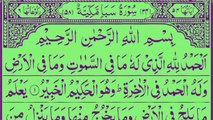 سُوْرَةُ سَبَاٍ مَكِّيَّةٌ
بِسْمِ اللّٰهِ الرَّحْمٰنِ الرَّحِيْمِ
اَلْحَمْدُ لِلّٰهِ الَّذِيْ لَهٗ مَا فِي السَّمٰوٰتِ وَمَا فِي الْاَرْضِ
وَلَهُ الْحَمْدُ فِي الْاٰخِرَةِ ؕ وَهُوَ الْحَكِيْمُ الْخَبِيْرُ ① يَعْلَمُ
مَا يَلِجُ فِي الْاَرْضِ وَمَا يَخْرُجُ مِنْهَا وَمَا يَنْزِلُ مِنَ